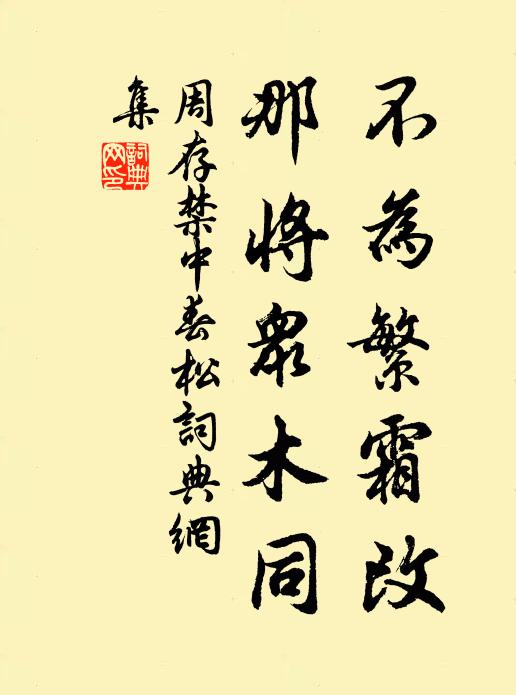 不為繁霜改
那將眾木同
周存禁中春松詞典網
集
詞典網印